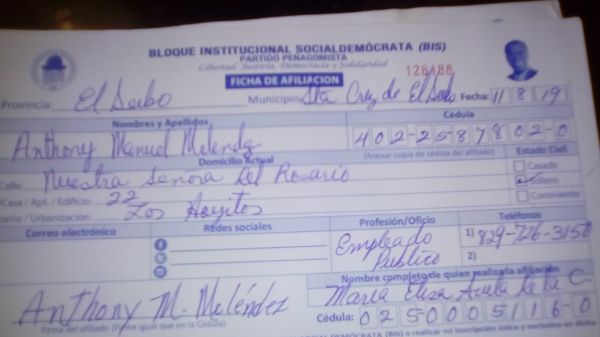 BLOQUE INSTITUCIONAL SOCIALDEMÓCRATA (BIS)
PARTIDO PEÑAGOMISTA
Libertad, Justicia, Democracia y Solidaridad
128188
FICHA DE AFILIACIÓN
Provincia: El Seibo Municipio: Sta Cruz de El Seibo Fecha: 11/8/19
Nombres y Apellidos Cédula
Anthony Manuel Melendez 402-2587802-0
Domicilio Actual (Anexar copia de cédula del afiliado) Estado Civil
Calle: Nuestra Señora Del Rosario Casado
Casa / Apt. / Edificio: 22 Soltero
Barrio / Urbanización: Los Hoyitos Conviviente
Correo electrónico Redes sociales Profesión/Oficio Teléfonos
Empleado Publico 1) 829-726-3150
2)
Nombre completo de quien realiza la afiliación
Anthony M. Meléndez Maria Elisa C.
Firma del afiliado (Firme igual que en la Cédula) Cédula: 0250005116-0
SOCIALDEMÓCRATA (BIS) a realizar mi inscripción única y exclusiva en dicha